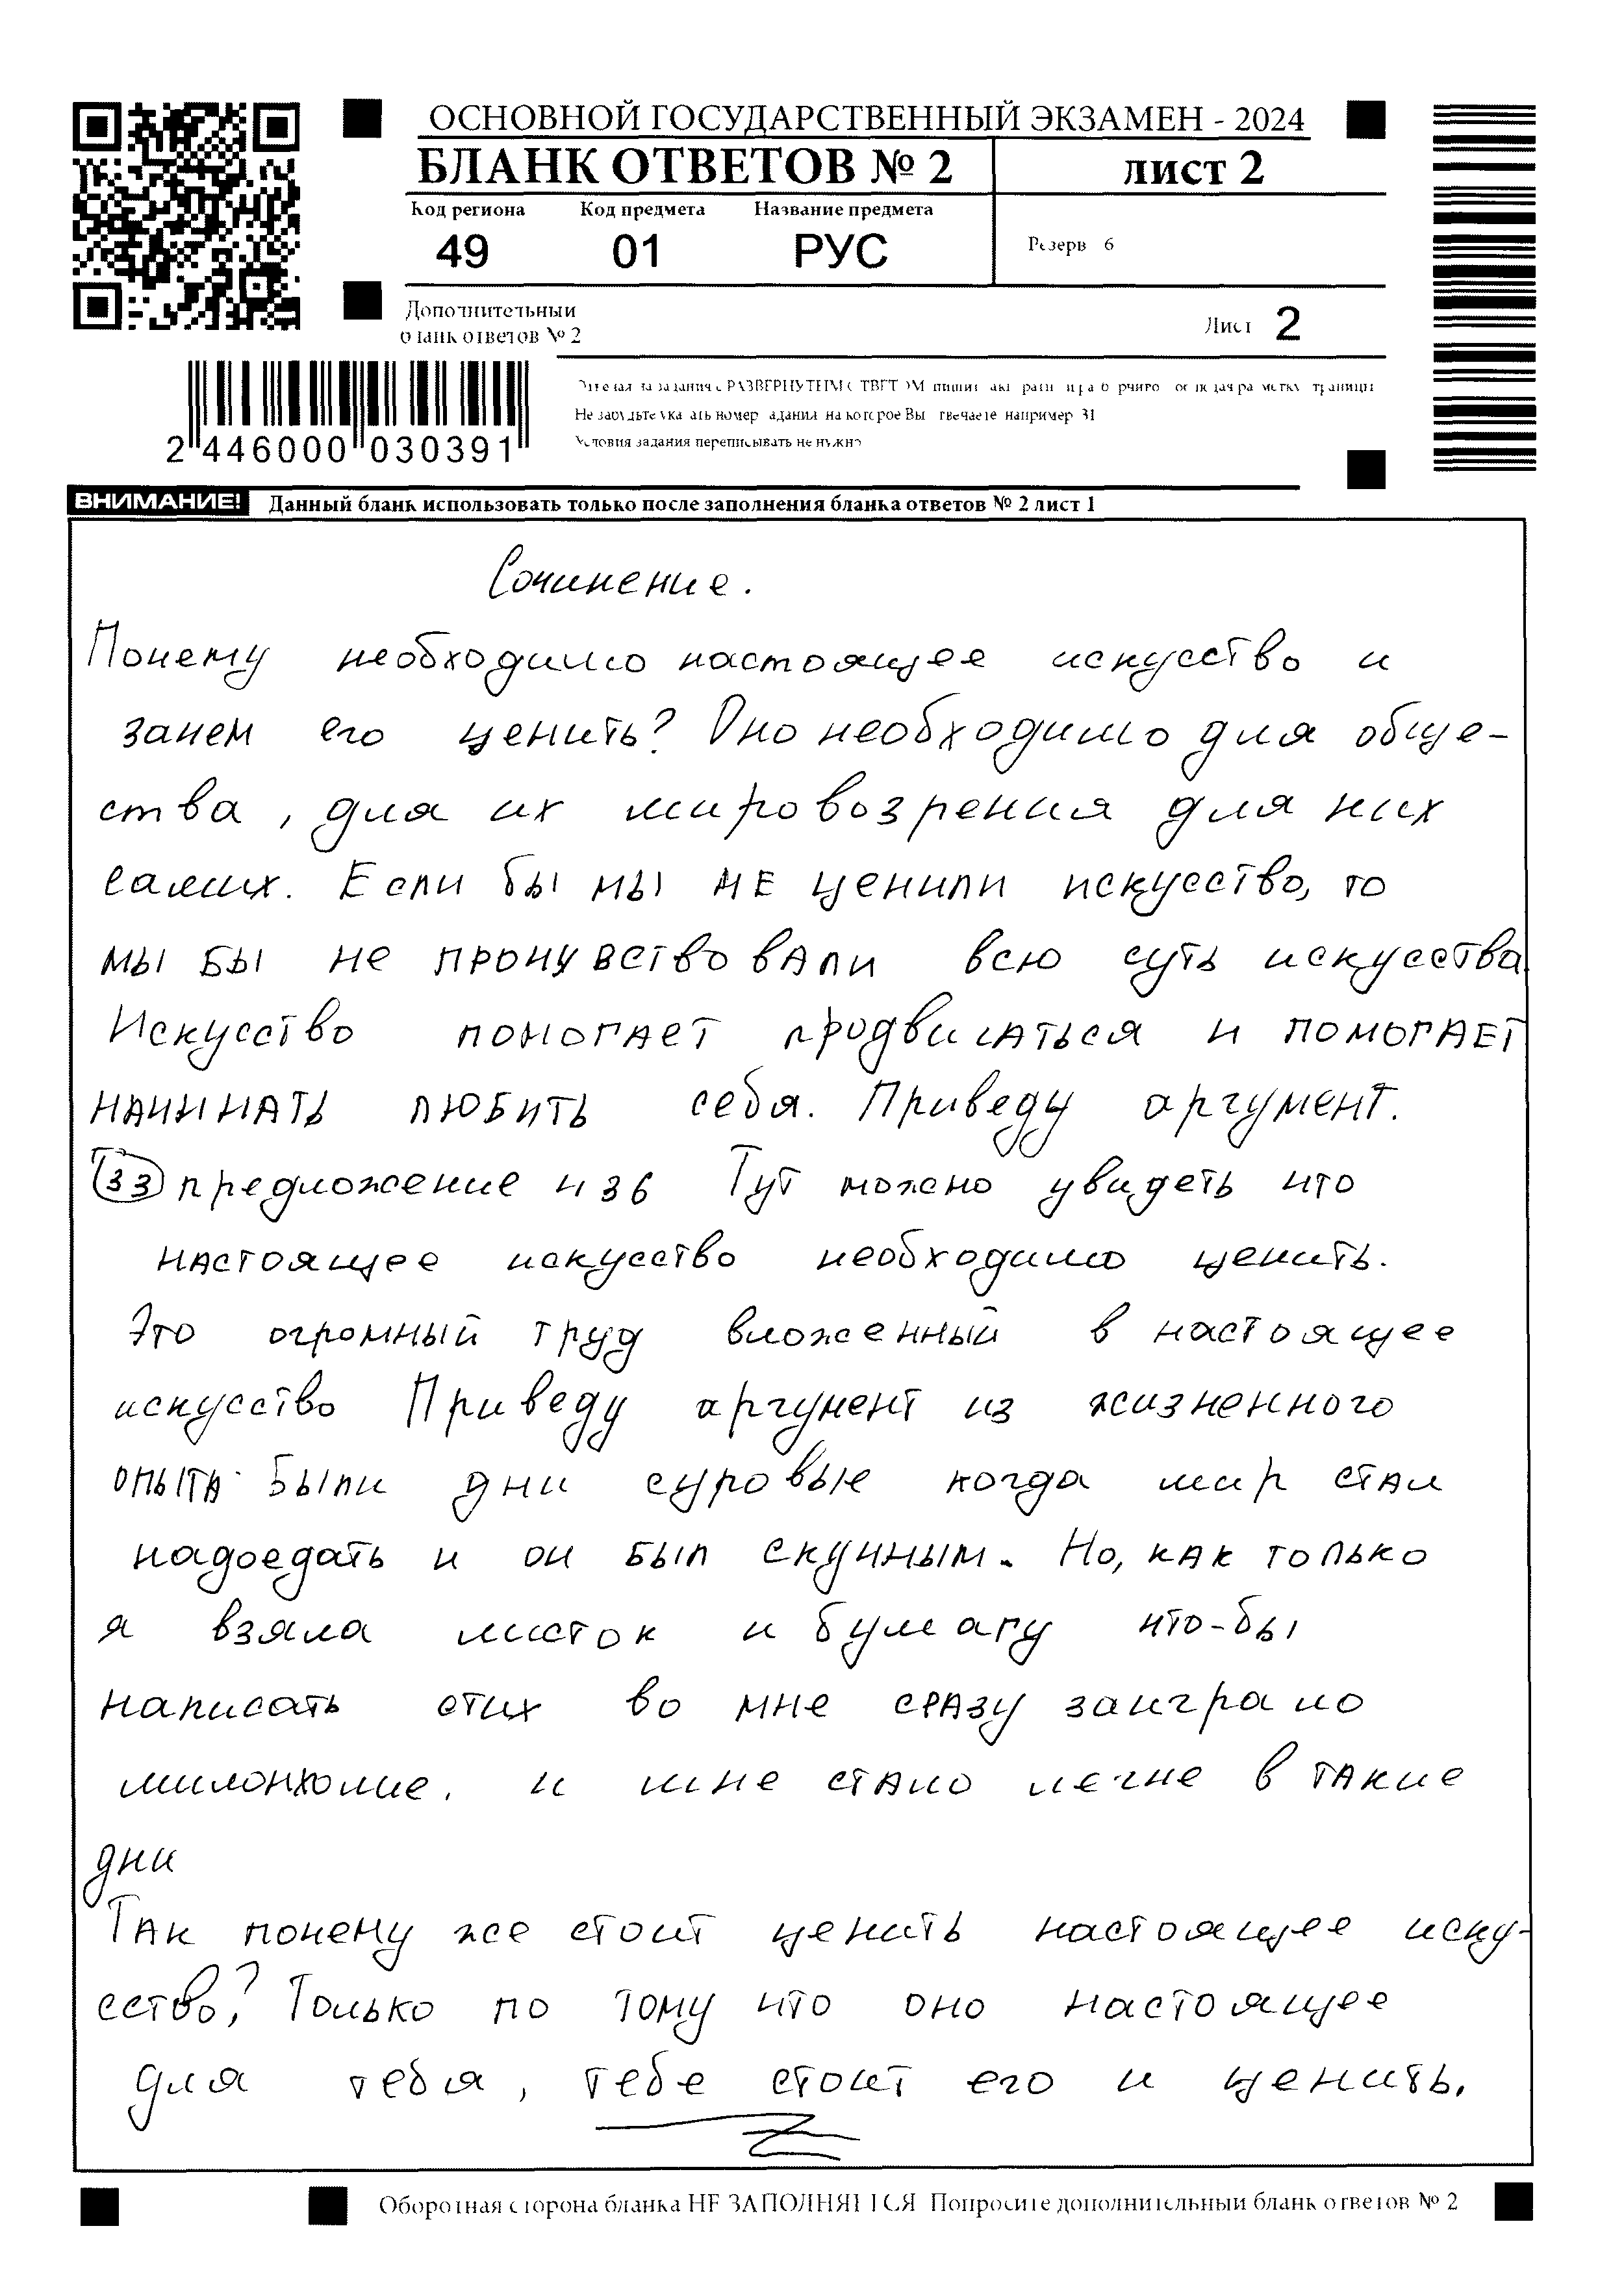 ОСНОВНОЙ ГОСУДАРСТВЕННЫЙ ЭКЗАМЕН - 2024
БЛАНК ОТВЕТОВ № 2
ЛИСТ 2
Код региона Код предмета Название предмета
49 01 РУС
Резерв 6
Дополнительный
бланк ответов № 2
Лист 2
Не забудьте указать номер задания на которое Вы отвечаете например 31
Условия задания переписывать не нужно
2 446000 030391
ВНИМАНИЕ! Данный бланк использовать только после заполнения бланка ответов № 2 лист 1
Сочинение.
Почему необходимо настоящее искусство и
зачем его ценить? Оно необходимо для обще-
ства, для их мировозрения для них
самих. Если бы мы не ценили искусство, то
мы бы не прочувствовали всю суть искусства
Искусство помогает продвигаться и помогает
начинать любить себя. Приведу аргумент.
33 предложение и 36 Тут можно увидеть что
настоящее искусство необходимо ценить.
Это огромный труд вложенный в настоящее
искусство Приведу аргумент из жизненного
опыта. Были дни суровые когда мир стал
надоедать и он был скучным. Но, как только
я взяла листок и бумагу что-бы
написать стих во мне сразу заиграло
милонхолие. и мне стало легче в такие
дни
Так почему же стоит ценить настоящее иску-
сство? Только по тому что оно настоящее
для тебя, тебе стоит его и ценить.
Оборотная сторона бланка НЕ ЗАПОЛНЯЕТСЯ Попросите дополнительный бланк ответов № 2